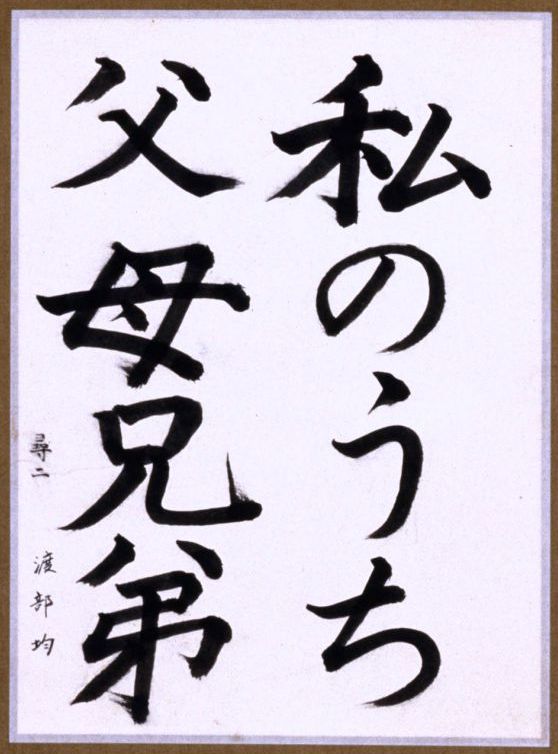 私のうち
父母兄弟
尋二 渡部均